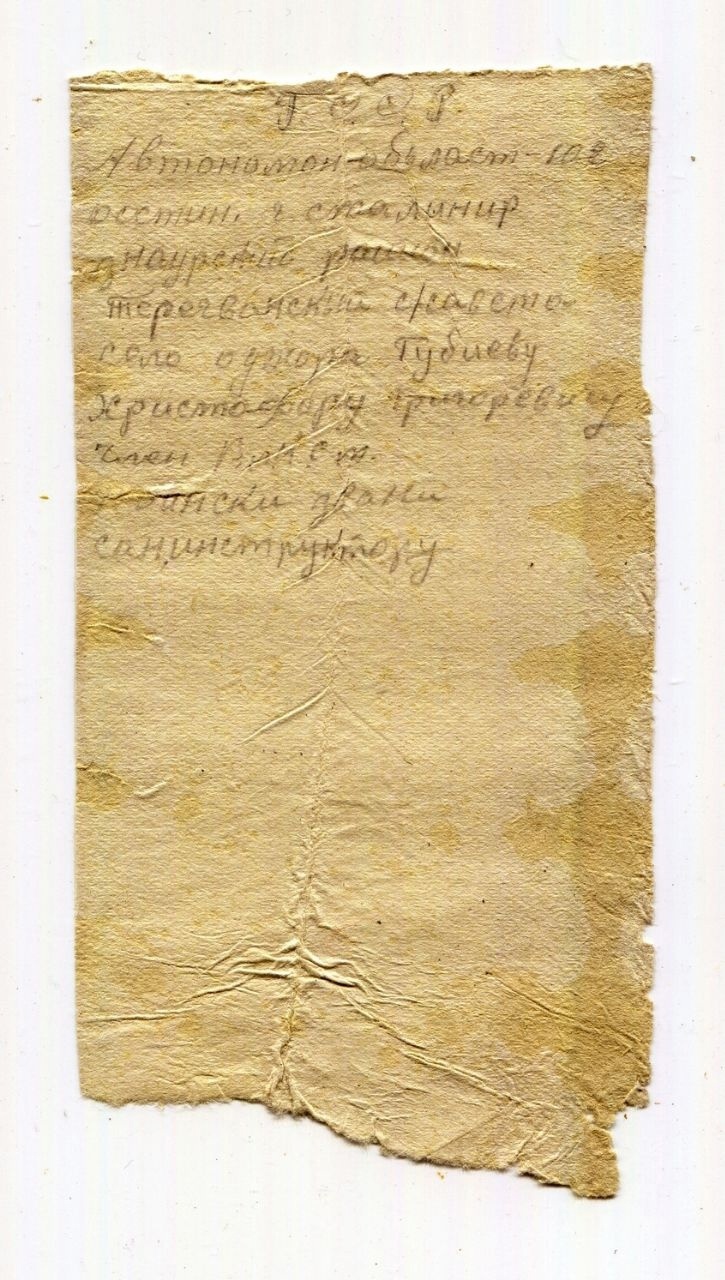 Г. С. С. Р.
Автономон-область-юг
осетин. г сталинир
знаурский раион
теречванский с/савета
село оджора Губиеву
Христофору григоревичу
член
воински звани
санинструктору